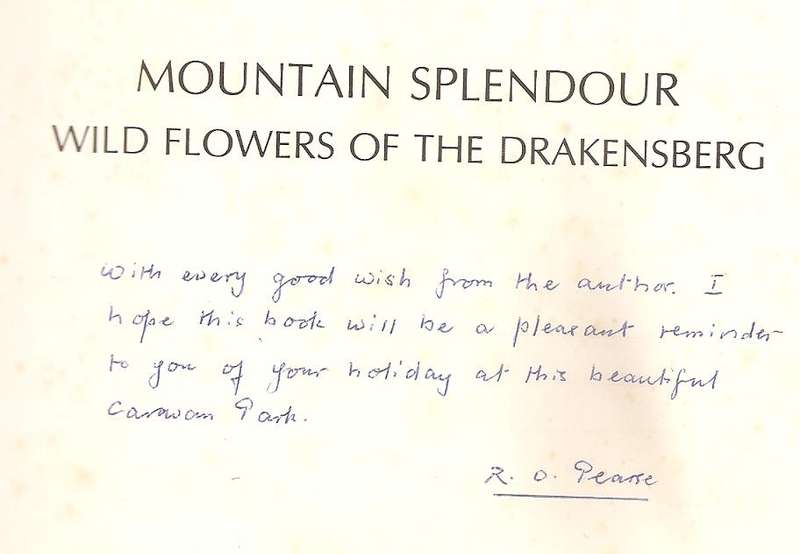 MOUNTAIN SPLENDOUR
WILD FLOWERS OF THE DRAKENSBERG
With every good wish from the author. I
hope this book will be a pleasant reminder
to you of your holiday at this beautiful
Caravan Park.
R. O. Pearse